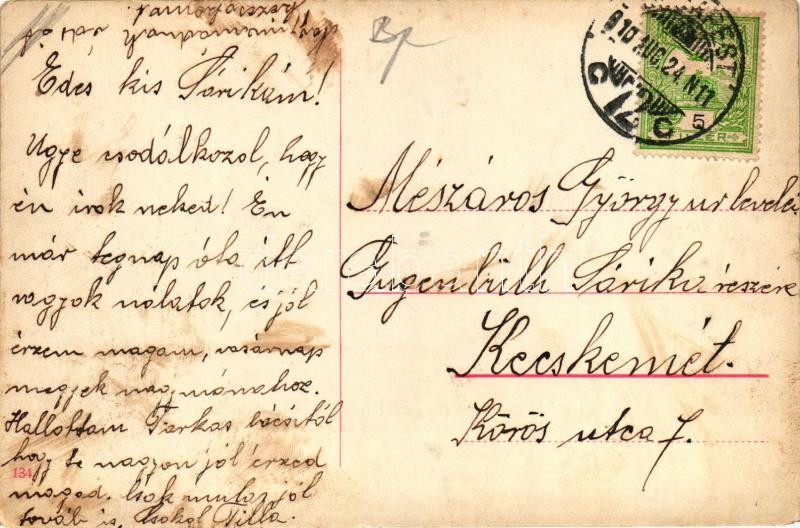 Édes kis Sárikám!
Ugye csodálkozol, hogy
én irok neked! Én
már tegnap óta itt
vagyok nálatok, és jól
érzem magam, vasárnap
megyek nagymámához.
Hallottam Farkas bácsitól
hogy te nagyon jól érzed
magad. Csak mulass jól
továb is, Csokol Tilla.
134
Mészáros György ur levelei
Gugenbüll Sárika részére
Kecskemét.
Kőrös utca 7.
910 AUG. 24. N11
5